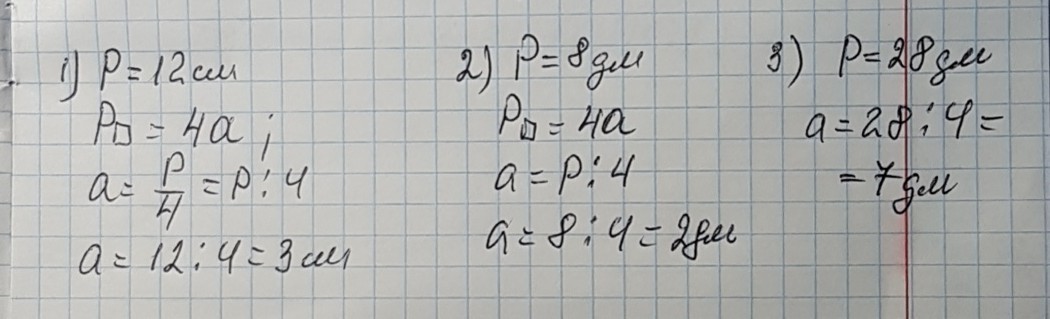 1) P = 12 см
P□ = 4a ;
a = P/4 = P : 4
a = 12 : 4 = 3 см
2) P = 8 дм
P□ = 4a
a = P : 4
a = 8 : 4 = 2 дм
3) P = 28 дм
a = 28 : 4 =
= 7 дм